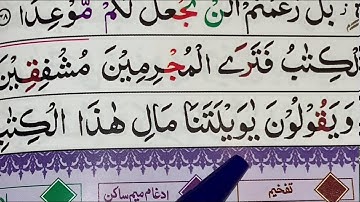 بَلْ زَعَمْتُمْ اَلَّنْ نَّجْعَلَ لَكُمْ مَّوْعِدًا ﴿۴۸﴾
الْكِتٰبُ فَتَرَى الْمُجْرِمِيْنَ مُشْفِقِيْنَ
وَيَقُوْلُوْنَ يٰوَيْلَتَنَا مَالِ هٰذَا الْكِتٰبِ
تفخیم
ادغام میم ساکن